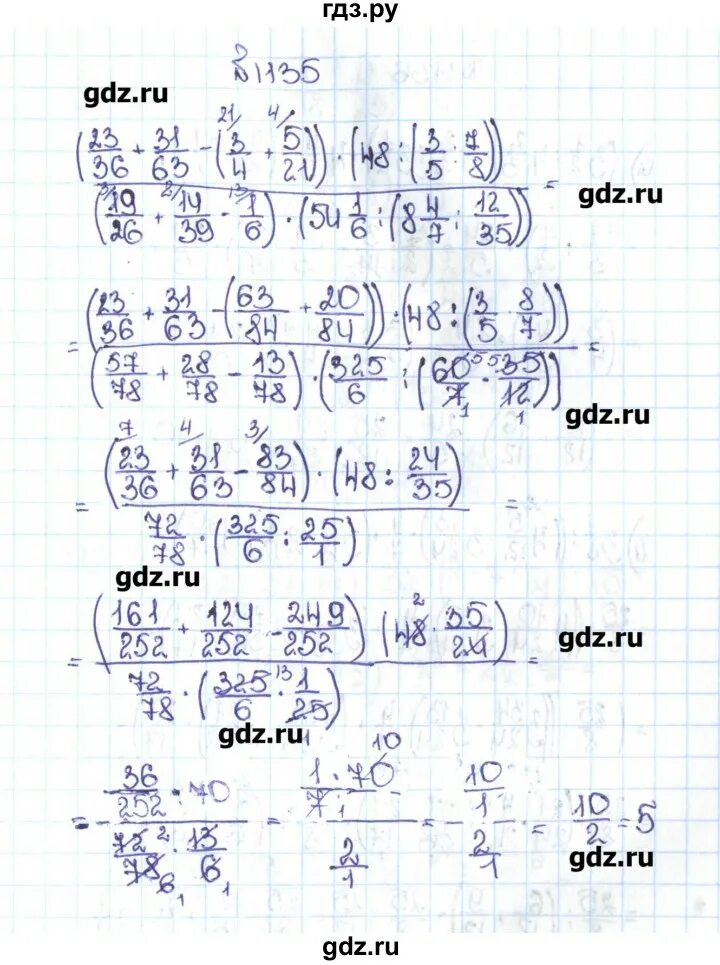 гдз.ру
№1135
gdz.ru
(23/36 + 31/63 - (21/ 3/4 + 4/ 5/21)) · (48 : (3/5 : 7/8))
/ (3/ 19/26 + 2/ 14/39 - 13/ 1/6) · (54 1/6 : (8 4/7 : 12/35)) =
gdz.ru
= (23/36 + 31/63 - (63/84 + 20/84)) · (48 : (3/5 · 8/7))
/ (57/78 + 28/78 - 13/78) · (325/6 : (60/7 · 35/12)) =
gdz.ru
= (7 23/36 + 4/ 31/63 - 3/ 83/84) · (48 : 24/35)
/ 72/78 · (325/6 : 25/1) =
gdz.ru
= (161/252 + 124/252 - 249/252) (48 2 · 35/24)
/ 72/78 · (325/6 13 · 1/25 1) =
gdz.ru
gdz.ru
= 36/252 · 70 / 72/78 · 13/6 = 1/7 · 70 / 2/1 = 10/1 / 2/1 = 10/2 = 5
gdz.ru
gdz.ru